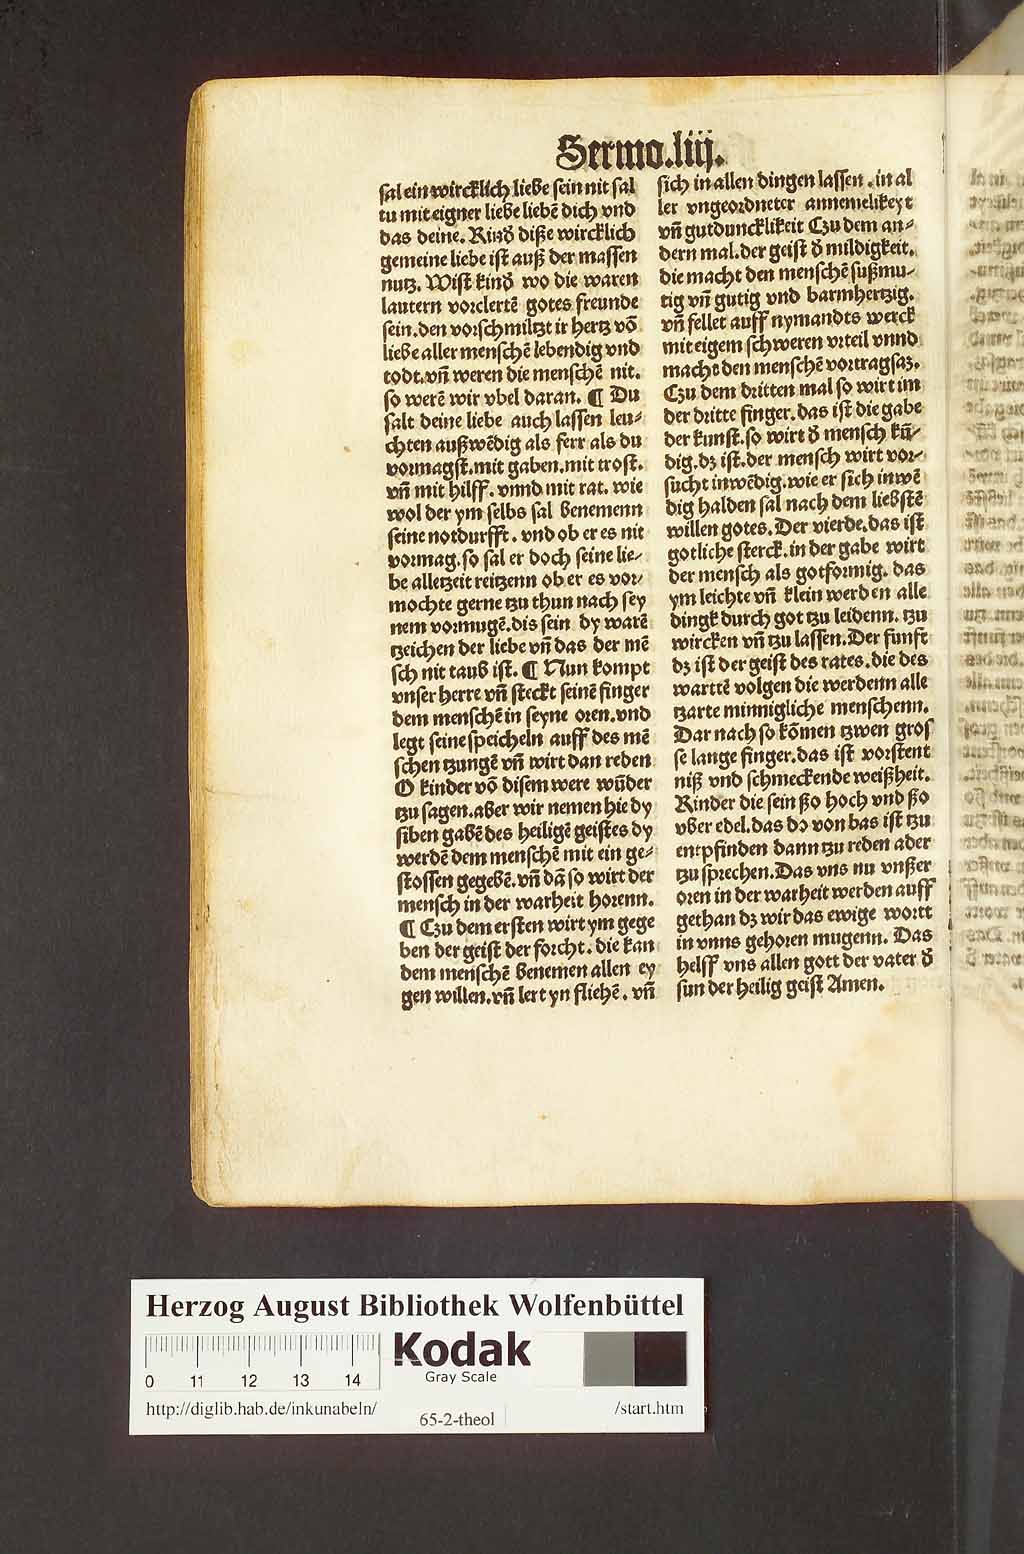 Sermo.liij.
sal ein wircklich liebe sein nit sal
tu mit eigner liebe liebē dich vnd
das deine. Kinð diße wircklich
gemeine liebe ist auß der massen
nutz. Wist kinð wo die waren
lautern vorclertē gotes freunde
sein.den vorschmiltzt ir hertz vō
liebe aller menschē lebendig vnd
todt.vn̄ weren die menschē nit.
so werē wir vbel daran. ¶ Du
salt deine liebe auch lassen leu⸗
chten außwēdig als ferr als du
vormagst.mit gaben.mit trost.
vn̄ mit hilff. vnnd mit rat. wie
wol der ym selbs sal benemenn
seine notdurfft. vnd ob er es nit
vormag.so sal er doch seine lie⸗
be alletzeit reitzenn ob er es vor⸗
mochte gerne tzu thun nach sey
nem vormugē.dis sein dy warē
tzeichen der liebe vn̄ das der mē
sch nit taub ist. ¶ Nun kompt
vnser herre vn̄ steckt seinē finger
dem menschē in seyne oren.vnd
legt seine speicheln auff des mē
schen tzungē vn̄ wirt dan reden
O kinder vō disem were wūder
tzu sagen.aber wir nemen hie dy
siben gabē des heiligē geistes dy
werdē dem menschē mit ein ge⸗
stossen gegebē.vn̄ dā so wirt der
mensch in der warheit horenn.
¶ Czu dem ersten wirt ym gege
ben der geist der forcht. die kan
dem menschē benemen allen ey
gen willen.vn̄ lert yn fliehē. vn̄
sich in allen dingen lassen. in al
ler vngeordneter annemelikeyt
vn̄ gutduncklikeit Czu dem an⸗
dern mal.der geist ð mildigkeit.
die macht den menschē sußmu⸗
tig vn̄ gutig vnd barmhertzig.
vn̄ fellet auff nymandts werck
mit eigem schweren vrteil vnnd
macht den menschē vortragsaz.
Czu dem dritten mal so wirt im
der dritte finger.das ist die gabe
der kunst.so wirt ð mensch kū⸗
dig.dz ist.der mensch wirt vor⸗
sucht inwēdig.wie er sich inwē
dig halden sal nach dem liebstē
willen gotes. Der vierde.das ist
gotliche sterck.in der gabe wirt
der mensch als gotformig. das
ym leichte vn̄ klein werden alle
dingk durch got tzu leidenn. tzu
wircken vn̄ tzu lassen.Der funft
dz ist der geist des rates.die des
wartē volgen die werdenn alle
tzarte minnigliche menschenn.
Dar nach so kōmen tzwen gros
se lange finger.das ist vorstent
niß vnd schmeckende weißheit.
Kinder die sein ßo hoch vnd ßo
vber edel.das dɔ von bas ist tzu
entpfinden dann tzu reden ader
tzu sprechen.Das vns nu vnßer
oren in der warheit werden auff
gethan dz wir das ewige wortt
in vnns gehoren mugenn. Das
helff vns allen gott der vater ð
sun der heilig geist Amen.
Herzog August Bibliothek Wolfenbüttel
Kodak
Gray Scale
0 11 12 13 14
http://diglib.hab.de/inkunabeln/
65-2-theol
/start.htm